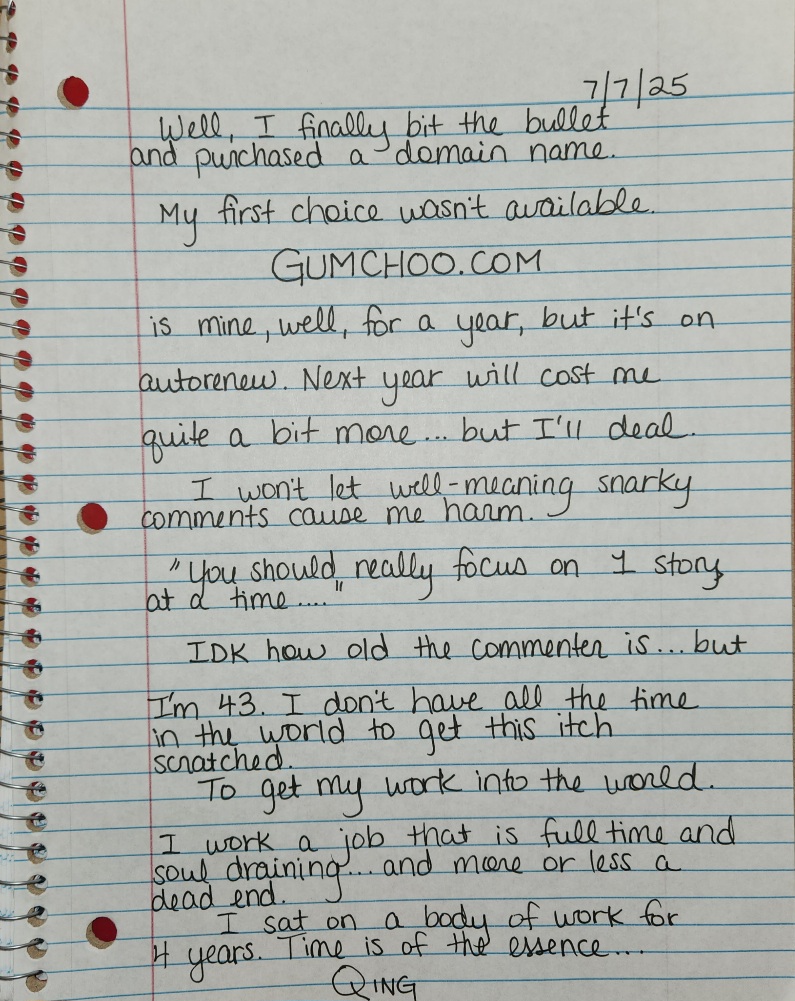 7/7/25
Well, I finally bit the bullet
and purchased a domain name.
My first choice wasn't available.
GUMCHOO.COM
is mine, well, for a year, but it's on
autorenew. Next year will cost me
quite a bit more... but I'll deal.
I won't let well-meaning snarky
comments cause me harm.
"You should really focus on 1 story
at a time...."
IDK how old the commenter is... but
I'm 43. I don't have all the time
in the world to get this itch
scratched.
To get my work into the world.
I work a job that is full time and
soul draining... and more or less a
dead end.
I sat on a body of work for
4 years. Time is of the essence...
QING